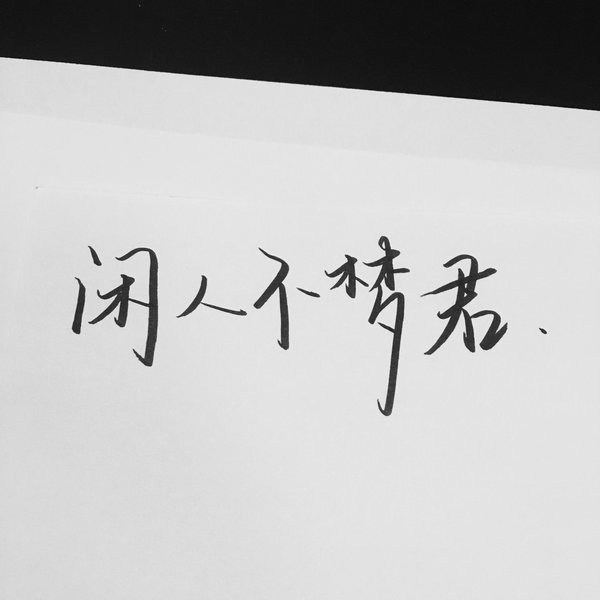 闲人不梦君.